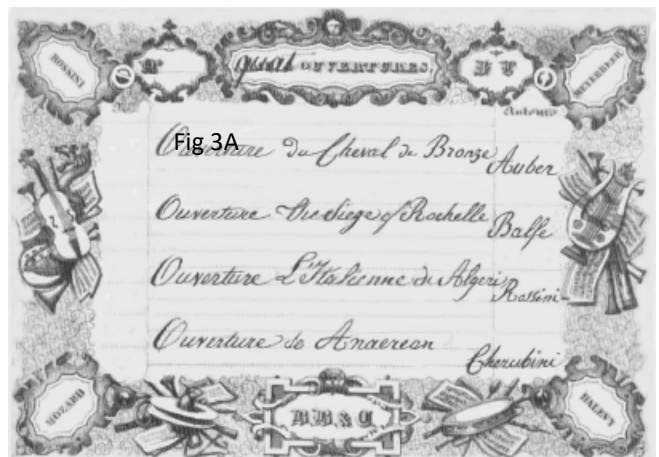 ROSSINI
Nº
quat OUVERTURES.
MEYERBEER
Auteurs
Fig 3A
Ouverture du Cheval de Bronze Auber
Ouverture The Siege of Rochelle Balfe
Ouverture L'Italienne en Algeri Rossini
Ouverture de Anacreon Cherubini
MOZARD
B.B. & C
HALEVY